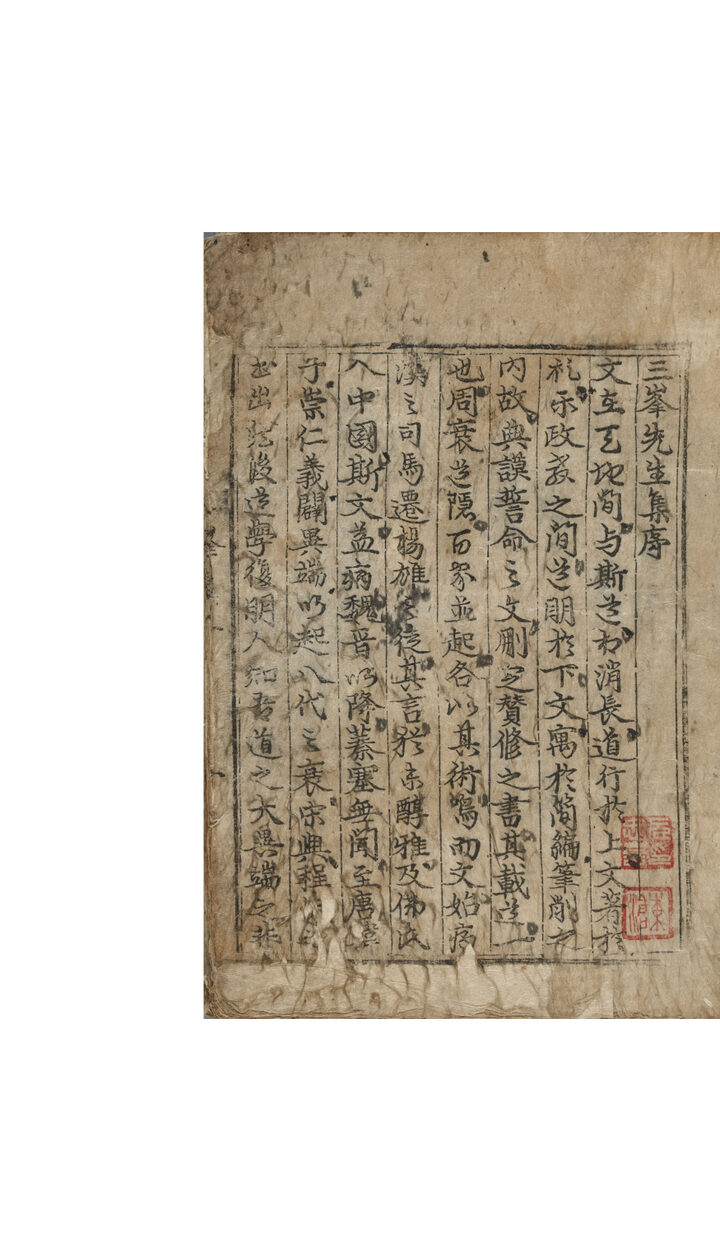 三峯先生集序
文在天地間与斯道相消長道行於上文著於
礼乐政敎之間道明於下文寓於簡編筆削之
內故典謨誓命之文刪定賛修之書其載道一
也周衰道隱百家並起各以其術鳴而文始病
漢之司馬遷楊雄之徒其言猶未醇雅及佛氏
入中國斯文益病魏晉以降蓁塞無聞至唐韓
子崇仁義闢異端以起八代之衰宋興程
出然後道學復明人知吾道之大異端之非